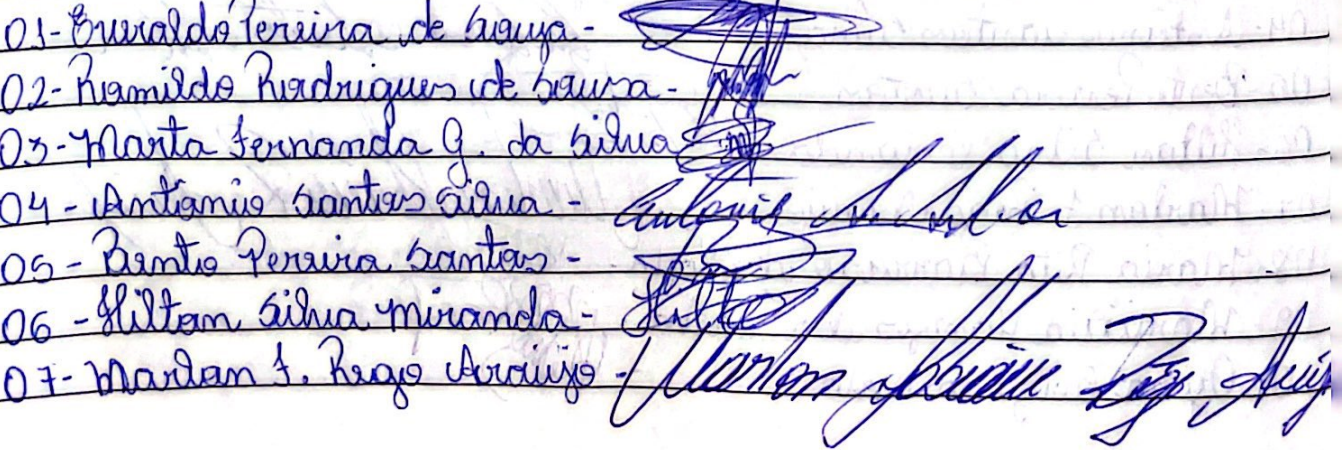 01- Everaldo Pereira de Souza -
02- Ramildo Rodrigues de Sousa -
03- Marta Fernanda G. da Silva
04 - Antonio Santos Silva - Antonio S. Silva
05 - Bento Pereira Santos -
06 - Hilton Silva Miranda - Hilto
07- Marlan F. Rego Araújo - Marlon